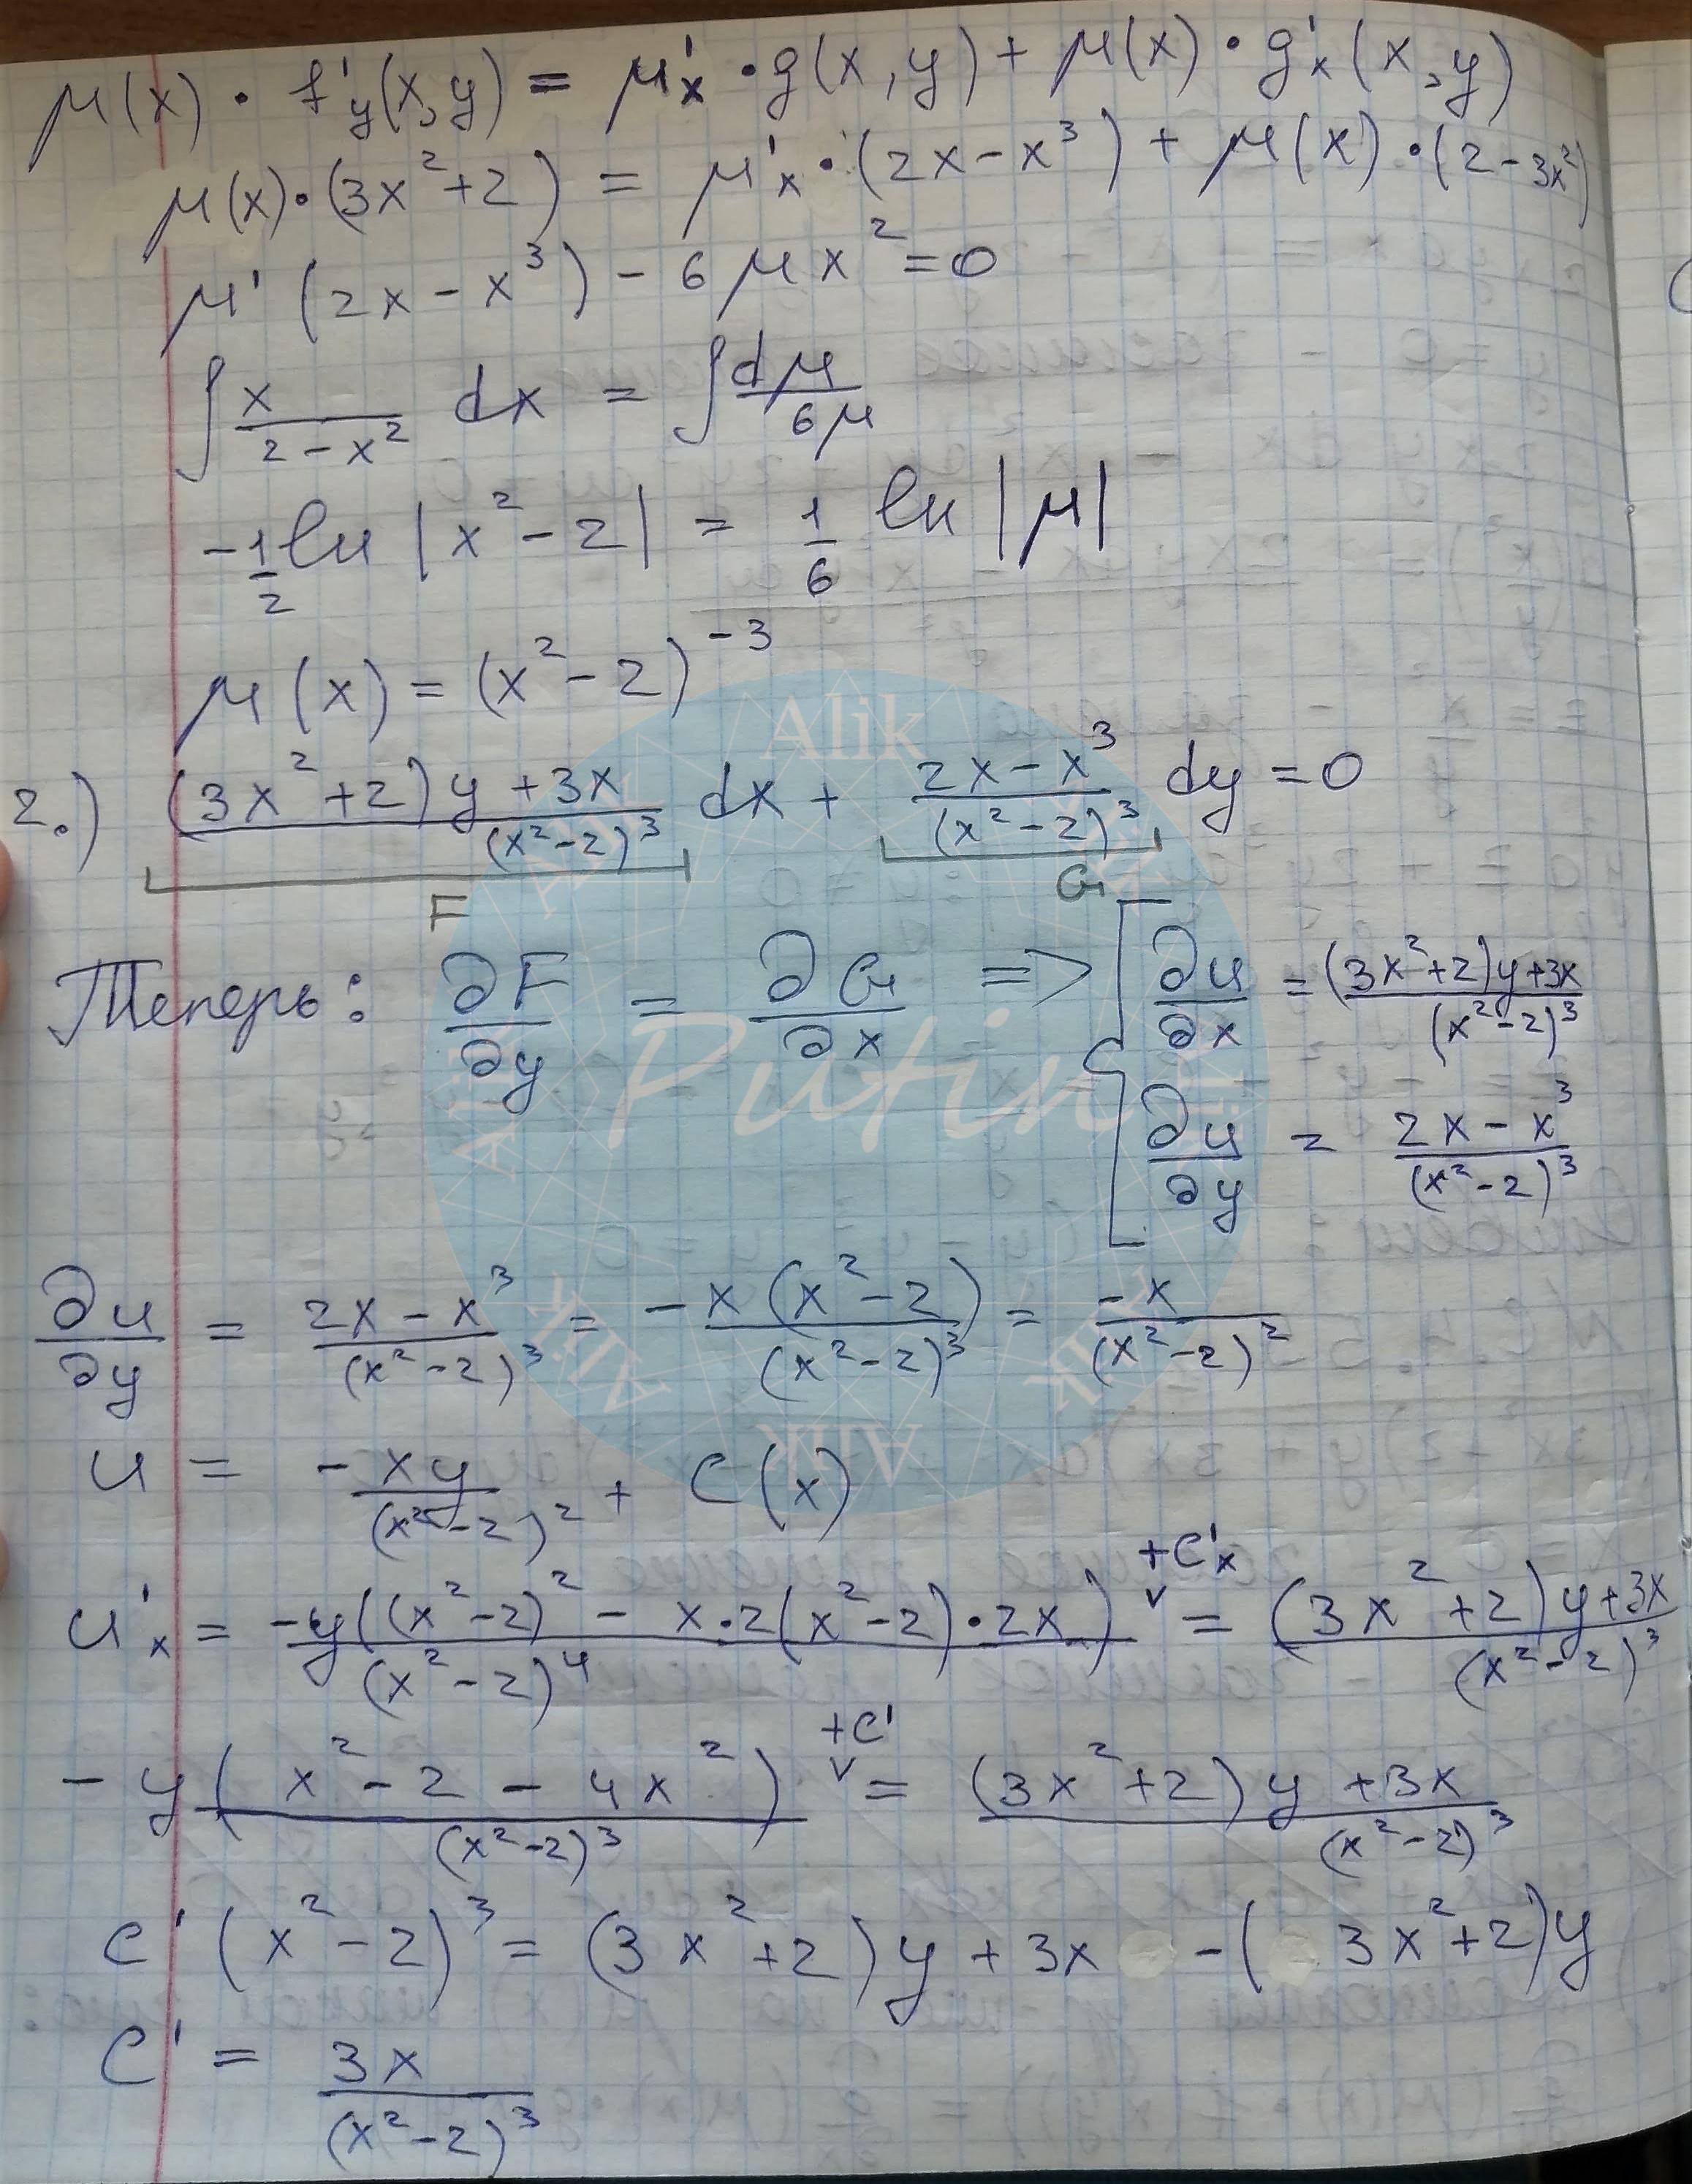 μ(x) · f'y(x,y) = μ'x · g(x,y) + μ(x) · g'x(x,y)
μ(x)·(3x²+2) = μ'x·(2x-x³) + μ(x)·(2-3x²)
μ'(2x-x³) - 6μx² = 0
∫ x/(2-x²) dx = ∫ dμ/6μ
-1/2 ln|x²-2| = 1/6 ln|μ|
μ(x) = (x²-2)⁻³
2.) ((3x²+2)y+3x)/(x²-2)³ dx + (2x-x³)/(x²-2)³ dy = 0
F G
Теперь: ∂F/∂y = ∂G/∂x => { ∂u/∂x = ((3x²+2)y+3x)/(x²-2)³
∂u/∂y = (2x-x³)/(x²-2)³
∂u/∂y = (2x-x³)/(x²-2)³ = -x(x²-2)/(x²-2)³ = -x/(x²-2)²
u = -xy/(x²-2)² + C(x)
u'x = -y((x²-2)² - x·2(x²-2)·2x)/(x²-2)⁴ +C'x = ((3x²+2)y+3x)/(x²-2)³
-y(x²-2-4x²)/(x²-2)³ +C' = ((3x²+2)y+3x)/(x²-2)³
C'(x²-2)³ = (3x²+2)y+3x -(3x²+2)y
C' = 3x/(x²-2)³
Alik
Putin
Alik
Alik
Alik